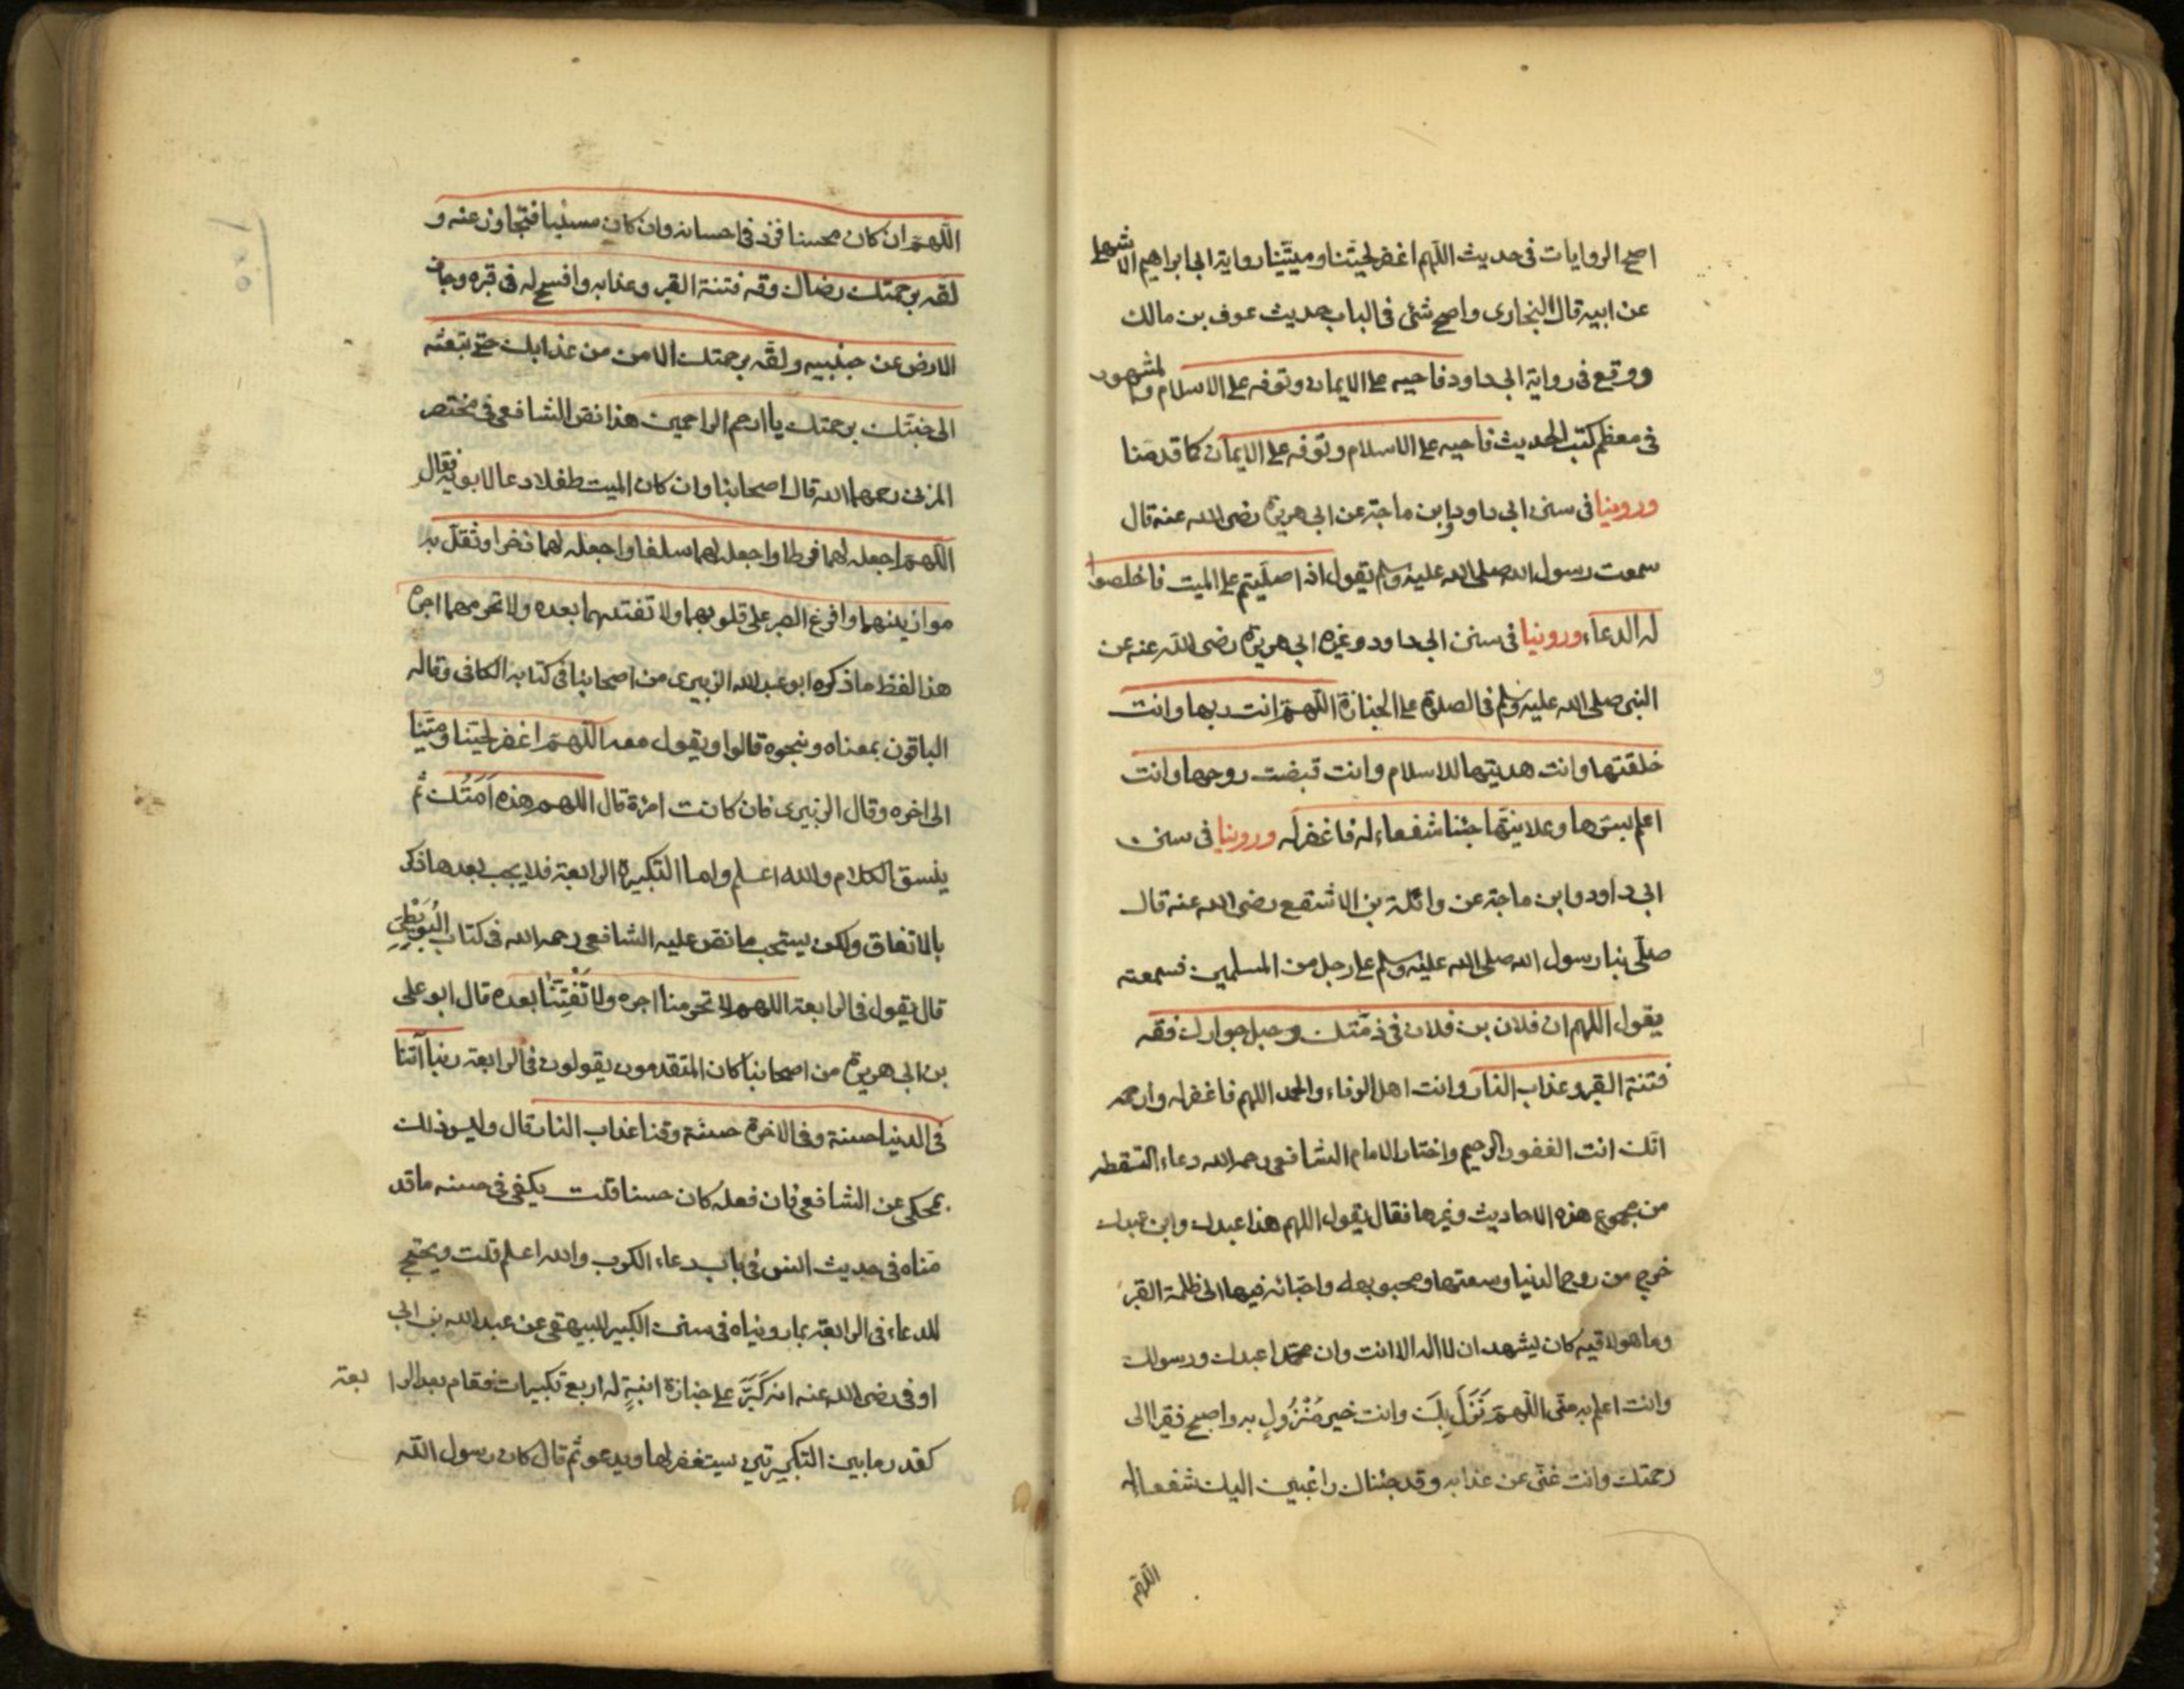 اصح الروايات فى حديث اللهم اغفر لحينا وميتنا رواية ابى ابراهيم الاشهلى
عن ابيه قال البخارى واصح شئ فى الباب حديث عوف بن مالك
ووقع فى رواية ابى داود فاحيه على الايمان وتوفه على الاسلام والمشهور
فى معظم كتب الحديث فاحيه على الاسلام وتوفه على الايمان كما قدمنا
وروينا فى سنن ابى داود وابن ماجة عن ابى هريرة رضى الله عنه قال
سمعت رسول الله صلى الله عليه وسلم يقول اذا صليتم على الميت فاخلصوا
له الدعاء وروينا فى سنن ابى داود وغيره ابى هريرة رضى الله عنه عن
النبى صلى الله عليه وسلم فى الصلوة على الجنازة اللهم انت ربها وانت
خلقتها وانت هديتها للاسلام وانت قبضت روحها وانت
اعلم بسرها وعلانيتها جئنا شفعاء له فاغفر له وروينا فى سنن
ابى داود وابن ماجة عن واثلة بن الاشقع رضى الله عنه قال
صلى بنا رسول الله صلى الله عليه وسلم على رجل من المسلمين فسمعته
يقول اللهم ان فلان بن فلان فى ذمتك وحبل جوارك فقه
فتنة القبر وعذاب النار وانت اهل الوفاء والحمد اللهم فاغفر له وارحمه
انك انت الغفور الرحيم واختار الامام الشافعى رحمه الله دعاء التقطه
من مجموع هذه الاحاديث وغيرها فقال يقول اللهم هذا عبدك وابن عبدك
خرج من روح الدنيا وسعتها ومحبوبها واحبائه فيها الى ظلمة القبر
وما هو لاقيه كان يشهد ان لا اله الا انت وان محمدا عبدك ورسولك
وانت اعلم به منى اللهم نَزَلَ بِكَ وانت خير مَنْزُولٍ به واصبح فقيرا الى
رحمتك وانت غنى عن عذابه وقد جئناك راغبين اليك شفعاء له
اللهم
اللهم ان كان محسنا فزد فى احسانه وان كان مسيئا فتجاوز عنه و
لقه برحمتك رضاك وقه فتنة القبر وعذابه وافسح له فى قبره وجاف
الارض عن جنبيه ولقه برحمتك الامن من عذابك حتى تبعثه
الى جنتك برحمتك يا ارحم الراحمين هذا نص الشافعى فى مختصر
المزنى رحمهما الله قال اصحابنا وان كان الميت طفلا دعا لابويه فقال
اللهم اجعله لهما فرطا واجعله لهما سلفا واجعله لهما ذخرا وثقل به
موازينهما وافرغ الصبر على قلوبهما ولا تفتنهما بعده ولا تحرمهما اجره
هذا لفظ ما ذكره ابو عبد الله الزبيرى من اصحابنا فى كتابه الكافى وقاله
الباقون بمعناه وبنحوه قالوا ويقول معه اللهم اغفر لحينا وميتنا
الى اخره وقال الزبيرى فان كانت امرٔة قال اللهم هذه اَمَتُك ثم
ينسق الكلام والله اعلم واما التكبيرة الرابعة فلا يجب بعدها ذكر
بالاتفاق ولكن يستحب ما نص عليه الشافعى رحمه الله فى كتاب البُوَيْطِىِّ
قال يقول فى الرابعة اللهم لا تحرمنا اجره ولا تَفْتِنَّا بعده قال ابو على
بن ابى هريرة من اصحابنا كان المتقدمون يقولون فى الرابعة ربنا آتنا
فى الدنيا حسنة وفى الاخرة حسنة وقنا عذاب النار قال وليس ذلك
بمحكى عن الشافعى فان فعله كان حسنا قلت يكفى فى حسنه ما قد
مناه فى حديث انس فى باب دعاء الكرب والله اعلم قلت ويحتج
للدعاء فى الرابعة بما رويناه فى سنن الكبير للبيهقى عن عبد الله بن ابى
اوفى رضى الله عنه انه كَبَّرَ على جنازة ابنةٍ له اربع تكبيرات فقام بعد الرا بعة
كقدر ما بين التكبيرتين يستغفر لها ويدعو ثم قال كان رسول الله